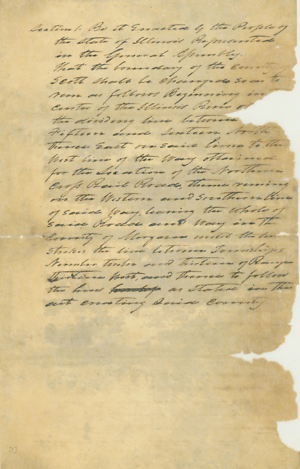 Section 1. Be it Enacted by the People of
the State of Illinois Represented
in the General Assembly
That the boundary of the County
Scott shall be changed so as to
run as follows Beginning in
Center of the Illinois River
the dividing line between
Fifteen and Sixteen North
thence East on said line to the
West line of the Way obtained
for the location of the Northern
Cross Rail Road, thence running
on the Western and Southern line
of said Way, leaving the whole of
said Road and Way in the
County of Morgan until
Strikes the line between Townships
Number and of Range
West, and thence to follow
the line as Stated in the
act creating said County